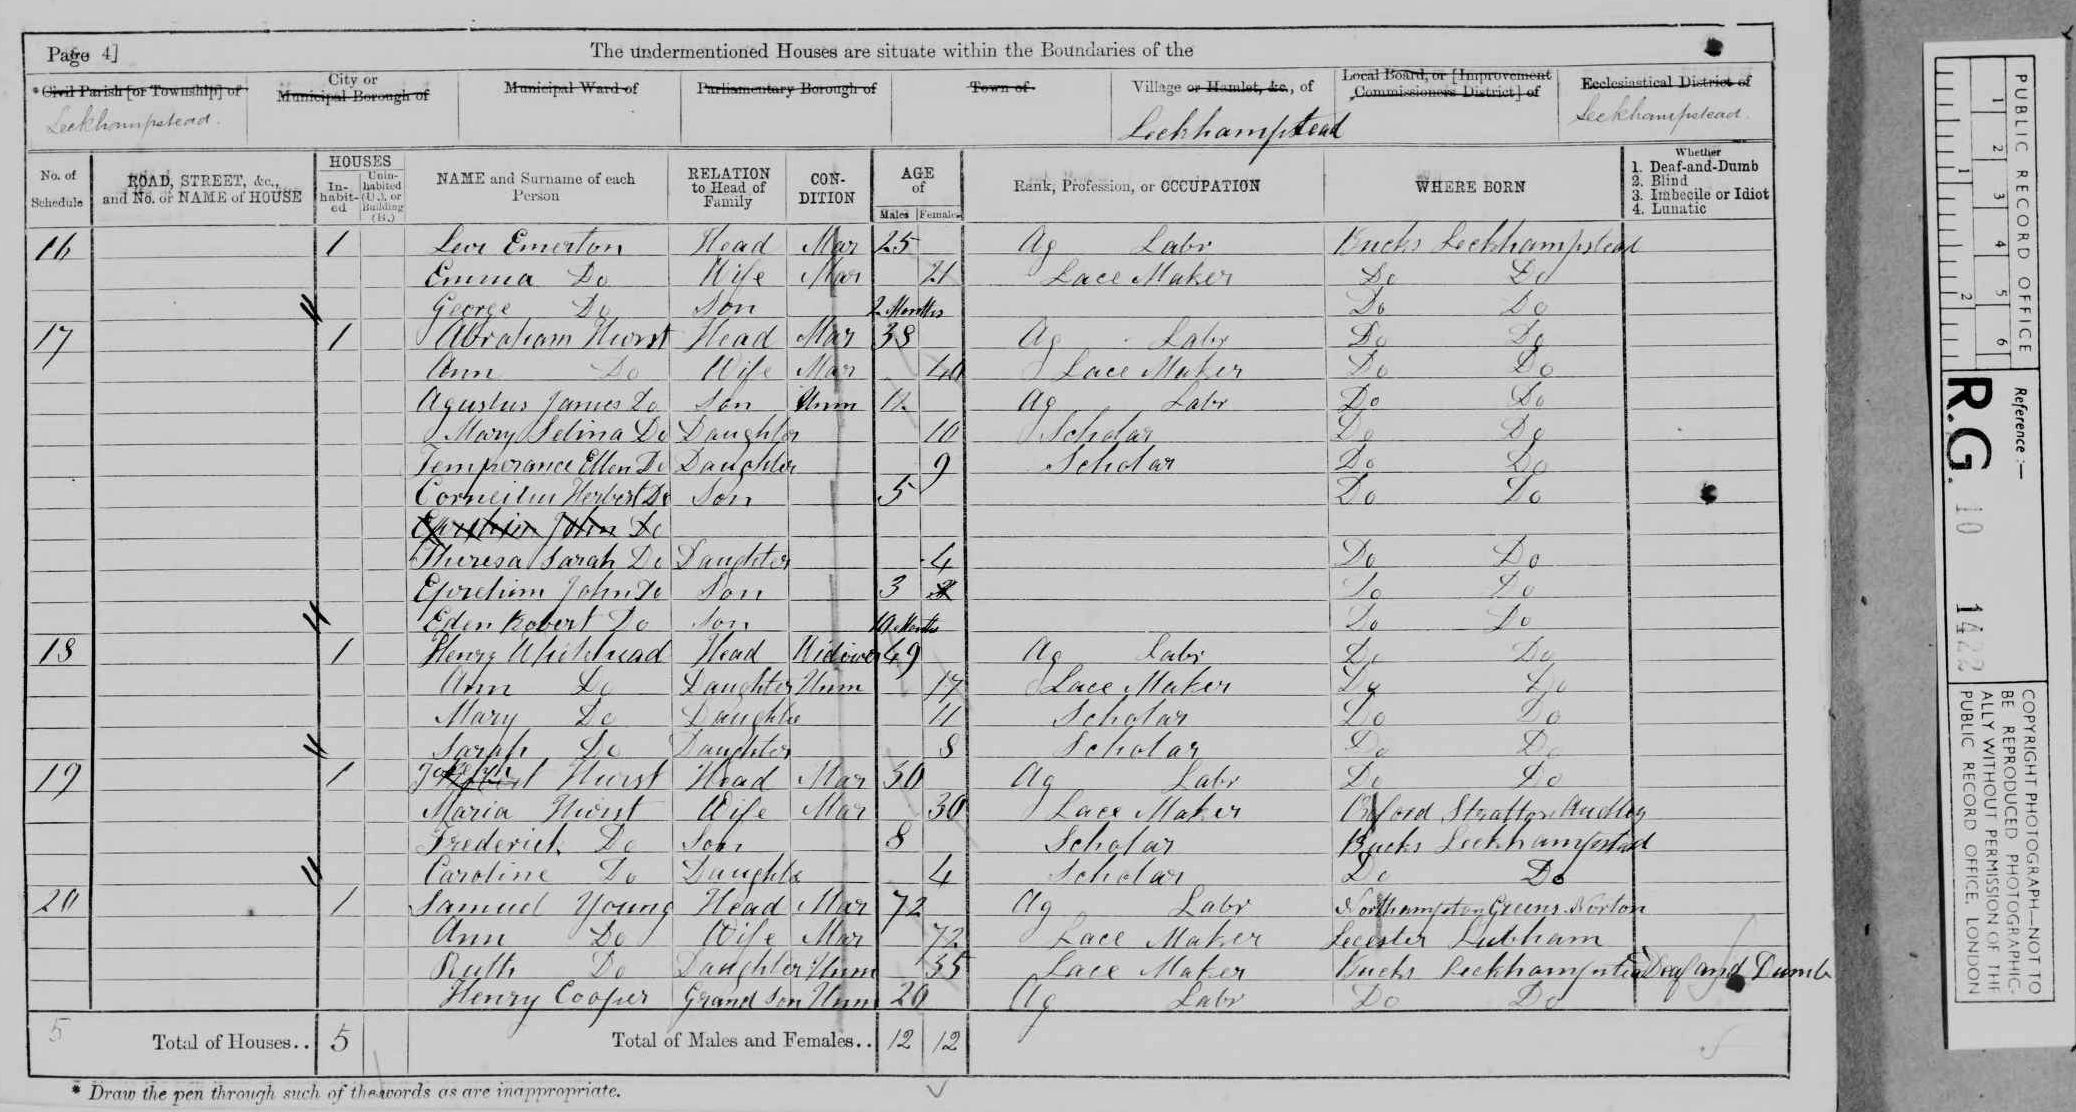 Page 4] The undermentioned Houses are situate within the Boundaries of the
* Civil Parish [or Township] of City or Municipal Borough of Municipal Ward of Parliamentary Borough of Town of Village or Hamlet, &c., of Local Board, or [Improvement Commissioners District] of Ecclesiastical District of
Leckhampstead. Leckhampstead Leckhampstead.
No. of Schedule ROAD, STREET, &c., and No. or NAME of HOUSE HOUSES In-habit-ed Unin-habited (U.), or Building (B.) NAME and Surname of each Person RELATION to Head of Family CON-DITION AGE of Males Females Rank, Profession, or OCCUPATION WHERE BORN Whether 1. Deaf-and-Dumb 2. Blind 3. Imbecile or Idiot 4. Lunatic
16 1 Levi Emerton Head Mar 25 Ag Labr Bucks Leckhampstead
Emma Do Wife Mar 21 Lace Maker Do Do
George Do Son 2 Months Do Do
17 1 Abraham Hurst Head Mar 38 Ag Labr Do Do
Ann Do Wife Mar 40 Lace Maker Do Do
Agustus James Do Son Unm Ag Labr Do Do
Mary Selina Do Daughter 10 Scholar Do Do
Temperance Ellen Do Daughter 9 Scholar Do Do
Herbert Do Son 5 Do Do
John Do
Theresa Sarah Do Daughter 4 Do Do
John Do Son 3 Do Do
Eden Robert Do Son 10 Months Do Do
18 1 Henry Whitehead Head Widower 49 Ag Labr Do Do
Ann Do Daughter Unm 17 Lace Maker Do Do
Mary Do Daughter 11 Scholar Do Do
Sarah Do Daughter 8 Scholar Do Do
19 1 Joseph Hurst Head Mar 30 Ag Labr Do Do
Maria Hurst Wife Mar 30 Lace Maker Oxford Stratton Audley
Frederick Do Son 8 Scholar Bucks Leckhampstead
Caroline Do Daughter 4 Scholar Do Do
20 1 Samuel Young Head Mar 72 Ag Labr Northampton Greens Norton
Ann Do Wife Mar 72 Lace Maker Lecester Lubham
Ruth Do Daughter Unm 35 Lace Maker Bucks Leckhampstead Deaf and Dumb
Henry Cooper Grand Son Unm 20 Ag Labr Do Do
5 Total of Houses.. 5 Total of Males and Females.. 12 12
* Draw the pen through such of the words as are inappropriate.
PUBLIC RECORD OFFICE
1 2 3 4 5 6
1 2
Reference :—
R.G. 10 1422
COPYRIGHT PHOTOGRAPH—NOT TO
BE REPRODUCED PHOTOGRAPHIC-
ALLY WITHOUT PERMISSION OF THE
PUBLIC RECORD OFFICE, LONDON